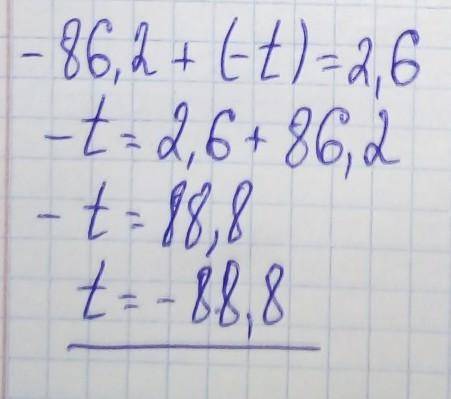 - 86,2 + (-t) = 2,6
-t = 2,6 + 86,2
- t = 88,8
t = - 88,8